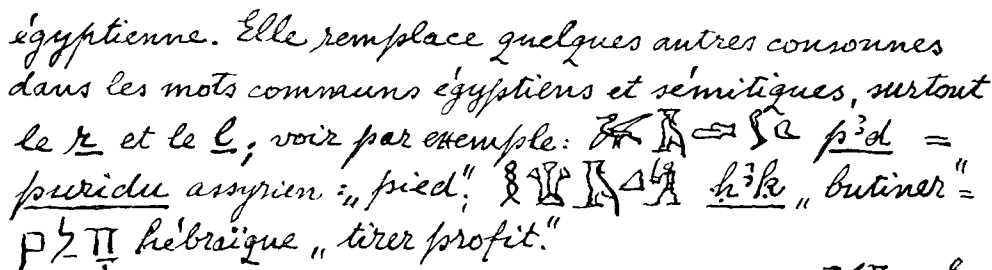 égyptienne. Elle remplace quelques autres consonnes
dans les mots communs égyptiens et sémitiques, surtout
le r et le l; voir par exemple: p³d =
puridu assyrien : „pied“; ḥ³ḳ „butiner“ =
חלק hébraïque „tirer profit.“